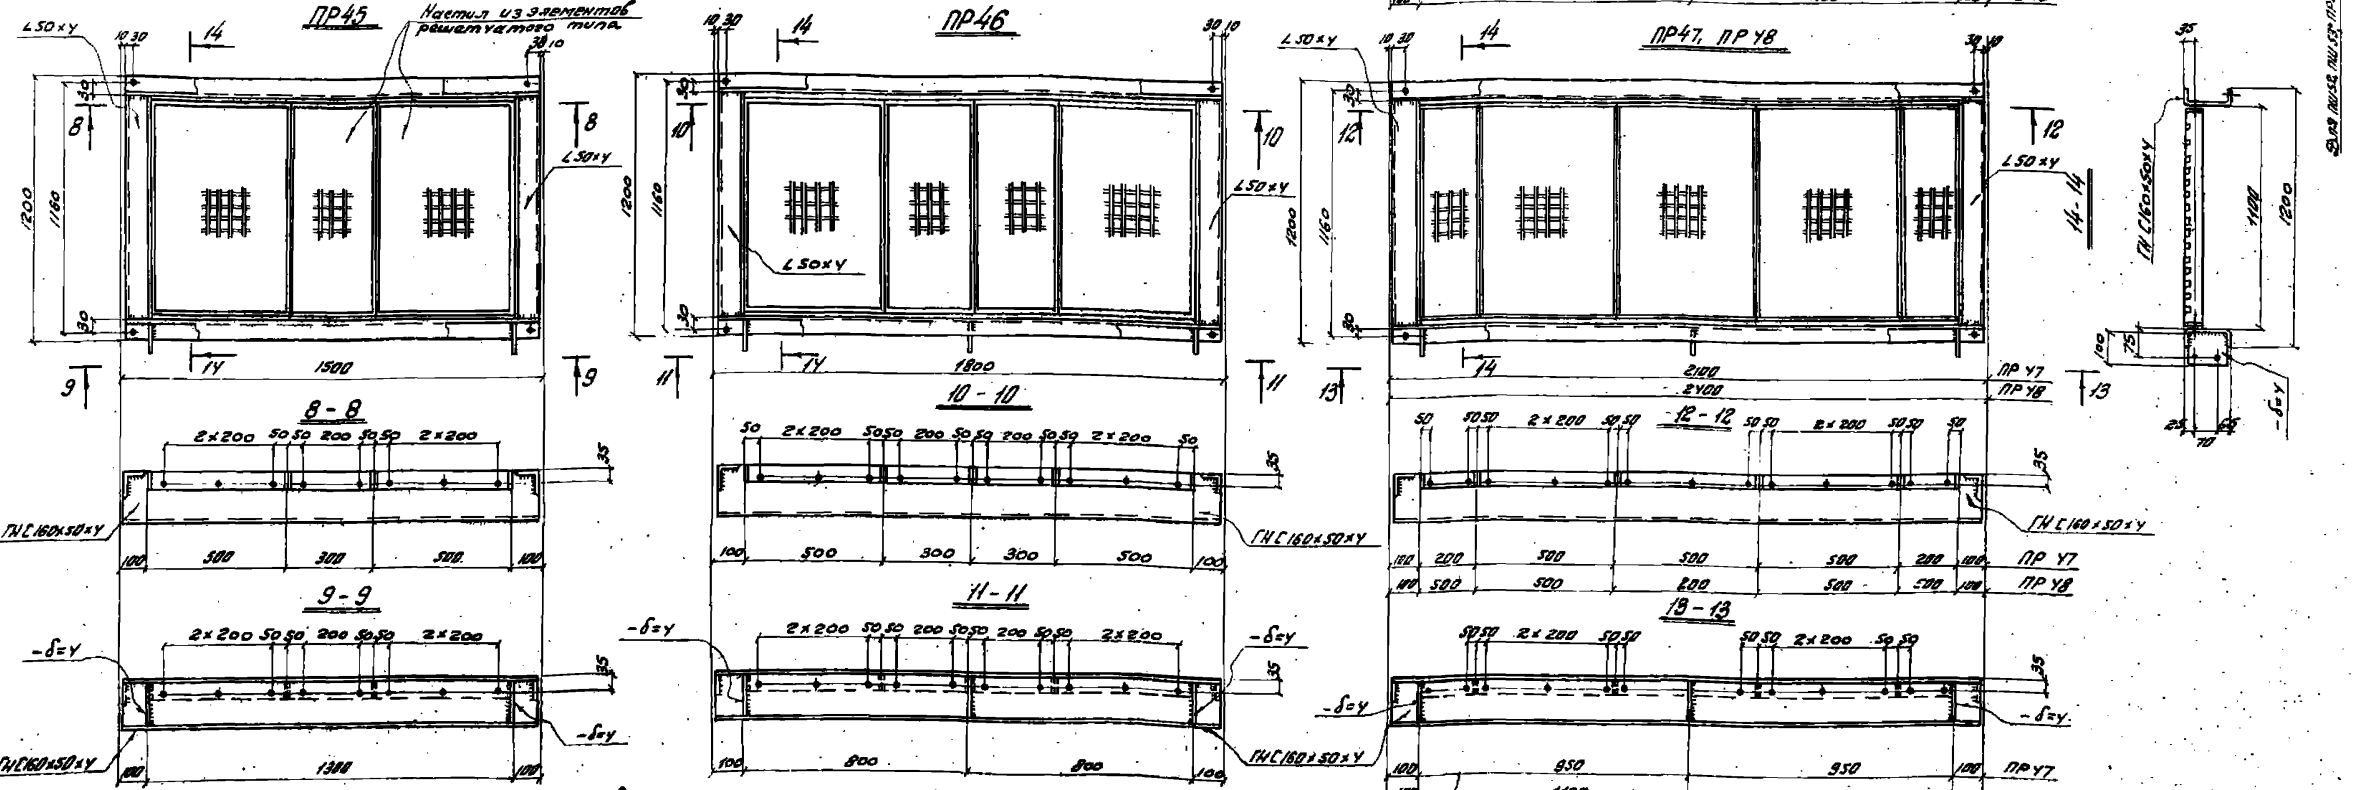 ПР45
Настил из элементов
решетчатого типа
L50×4
10 30
14
30 10
30
8
8
L50×4
1200
1160
30
14
1500
9
9
8-8
2×200 50 50 200 50 50 2×200
35
ГН С160×50×4
100 500 300 500 100
9-9
2×200 50 50 200 50 50 2×200
35
-δ=4
-δ=4
ГН С160×50×4
100 1300 100
ПР46
10 30
14
30 10
30
10
10
L50×4
L50×4
1200
1160
30
14
1800
11
11
10-10
50 2×200 50 50 200 50 50 200 50 50 2×200 50
35
ГН С160×50×4
100 500 300 300 500 100
11-11
2×200 50 50 200 50 50 200 50 50 2×200
-δ=4
-δ=4
35
ГН С160×50×4
100 800 800 100
ПР47, ПР48
L50×4
10 30
14
30 10
30
12
12
L50×4
1200
1160
30
14
2100 ПР47
2400 ПР48
13
13
12-12
50 50 50 2×200 50 50 50 50 2×200 50 50 50
35
ГН С160×50×4
100 200 500 500 500 200 100 ПР47
100 500 500 200 500 500 100 ПР48
13-13
50 50 2×200 50 50 50 50 2×200 50 50
35
-δ=4
-δ=4
100 950 950 100 ПР47
14-14
35
ГН С160×50×4
1100
1200
100
75
25 70
-δ=4